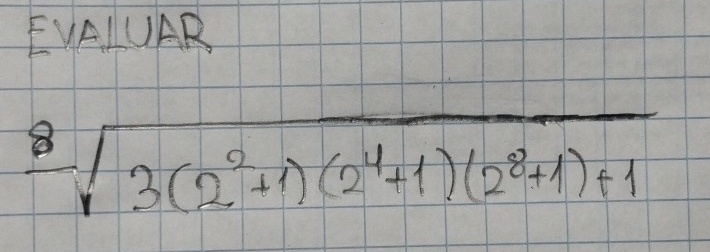 EVALUAR
⁸√(3(2²+1)(2⁴+1)(2⁸+1)+1)